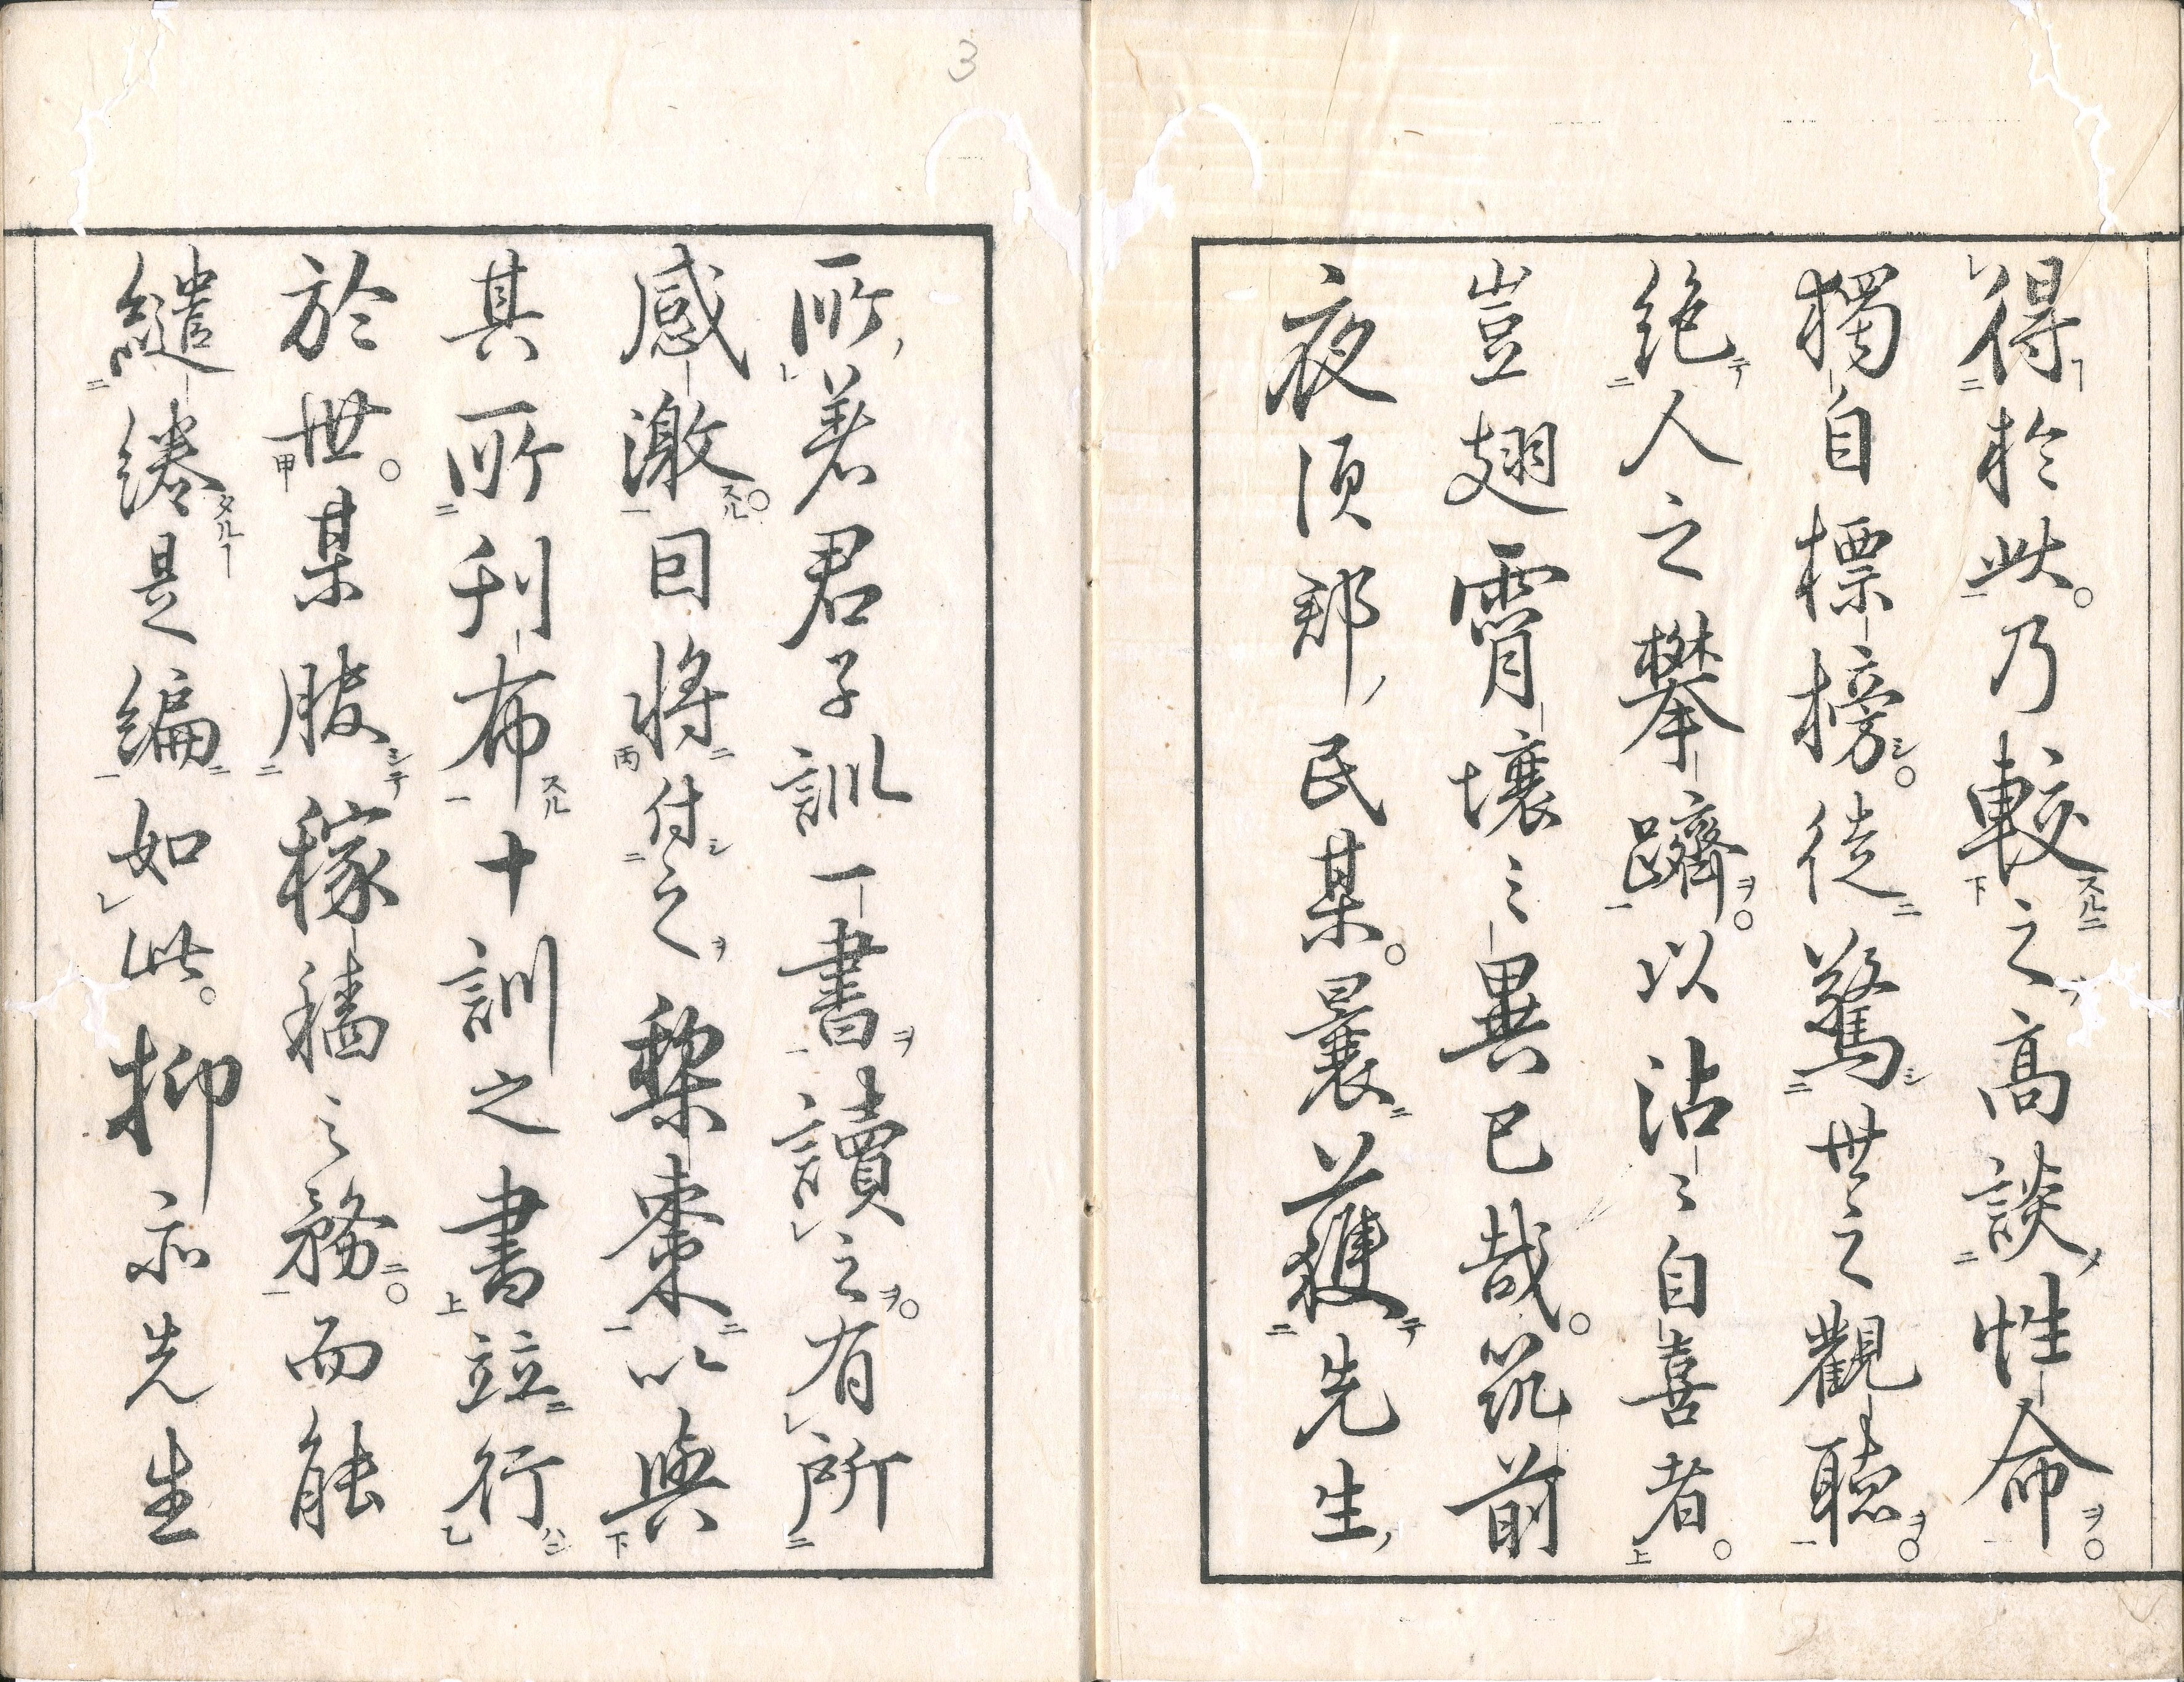 得於此。乃較之高談性命。
獨自標榜。徒驚世之觀聽。
絶人之攀躋。以沾〻自喜者。
豈翅霄壤之異已哉。筑前
夜須郡民某。曩獲先生
所著君子訓一書讀之。有所
感激。因將付之棃棗以與
其所刊布十訓之書竝行
於世。某服稼穡之務。而能
繾綣是編如此。抑亦先生
3